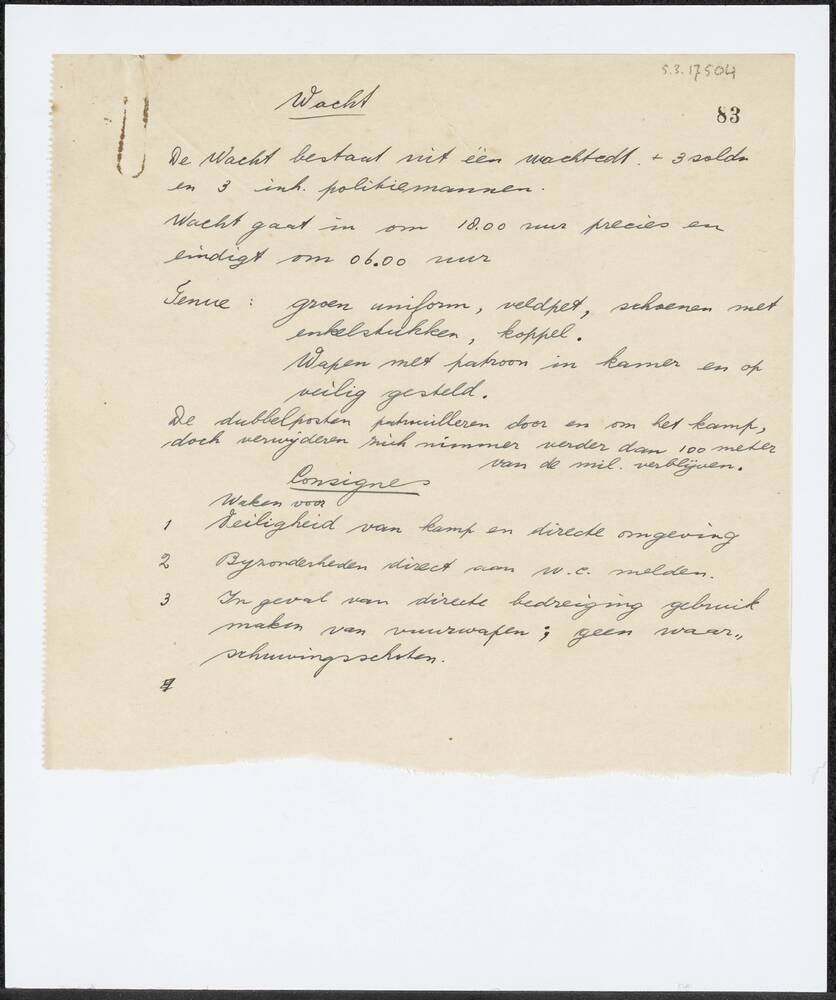 5.3.17504
83
Wacht
De Wacht bestaat uit één wachtcdt. + 3 soldn
en 3 inh. politiemannen.
Wacht gaat in om 18.00 uur precies en
eindigt om 06.00 uur
Tenue : groen uniform, veldpet, schoenen met
enkelstukken, koppel.
Wapen met patroon in kamer en op
veilig gesteld.
De dubbelposten patrouilleren door en om het kamp,
doch verwijderen zich nimmer verder dan 100 meter
van de mil. verblijven.
Consignes
Waken voor
1 Veiligheid van kamp en directe omgeving
2 Byzonderheden direct aan w.c. melden.
3 In geval van directe bedreiging gebruik
maken van vuurwapen; geen waar„
schuwingsschoten.
4